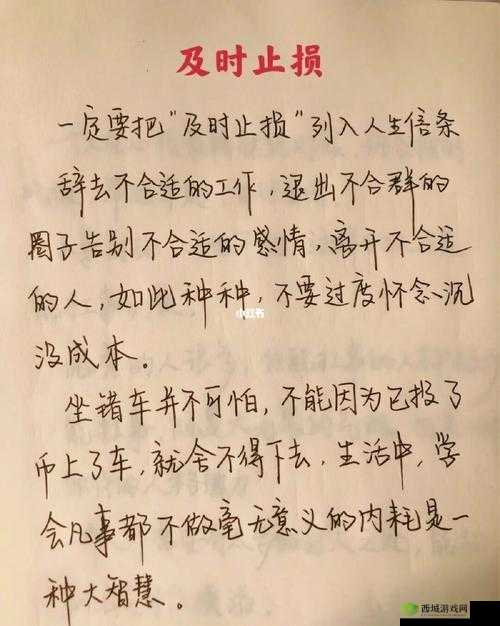 及时止损
一定要把"及时止损"列入人生信条
辞去不合适的工作,退出不合群的
圈子告别不合适的感情,离开不合适
的人,如此种种,不要过度怀念沉
没成本。
小红书
坐错车并不可怕,不能因为已投了
币上了车,就舍不得下去,生活中,学
会凡事都不做毫无意义的内耗是一
种大智慧。
西城游戏网